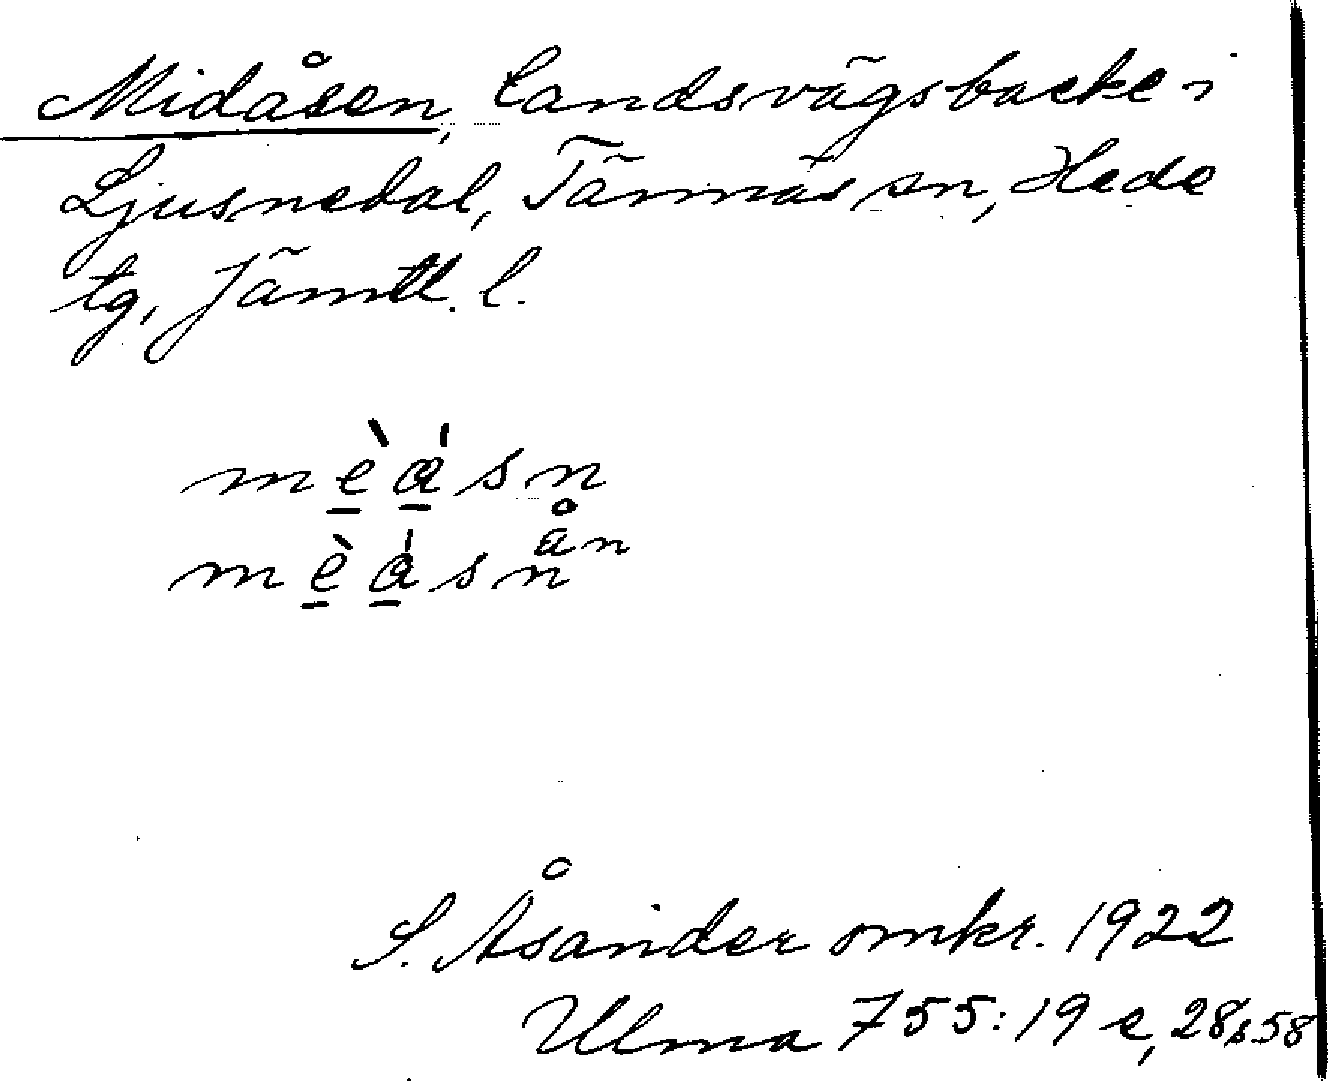 Midåsen, landsvägsbacke i
Ljusnedal, Tännäs sn, Hede
tg, Jämtl. l.
S. Åsander omkr. 1922
Ulma 755:19 e, 28 s. 58